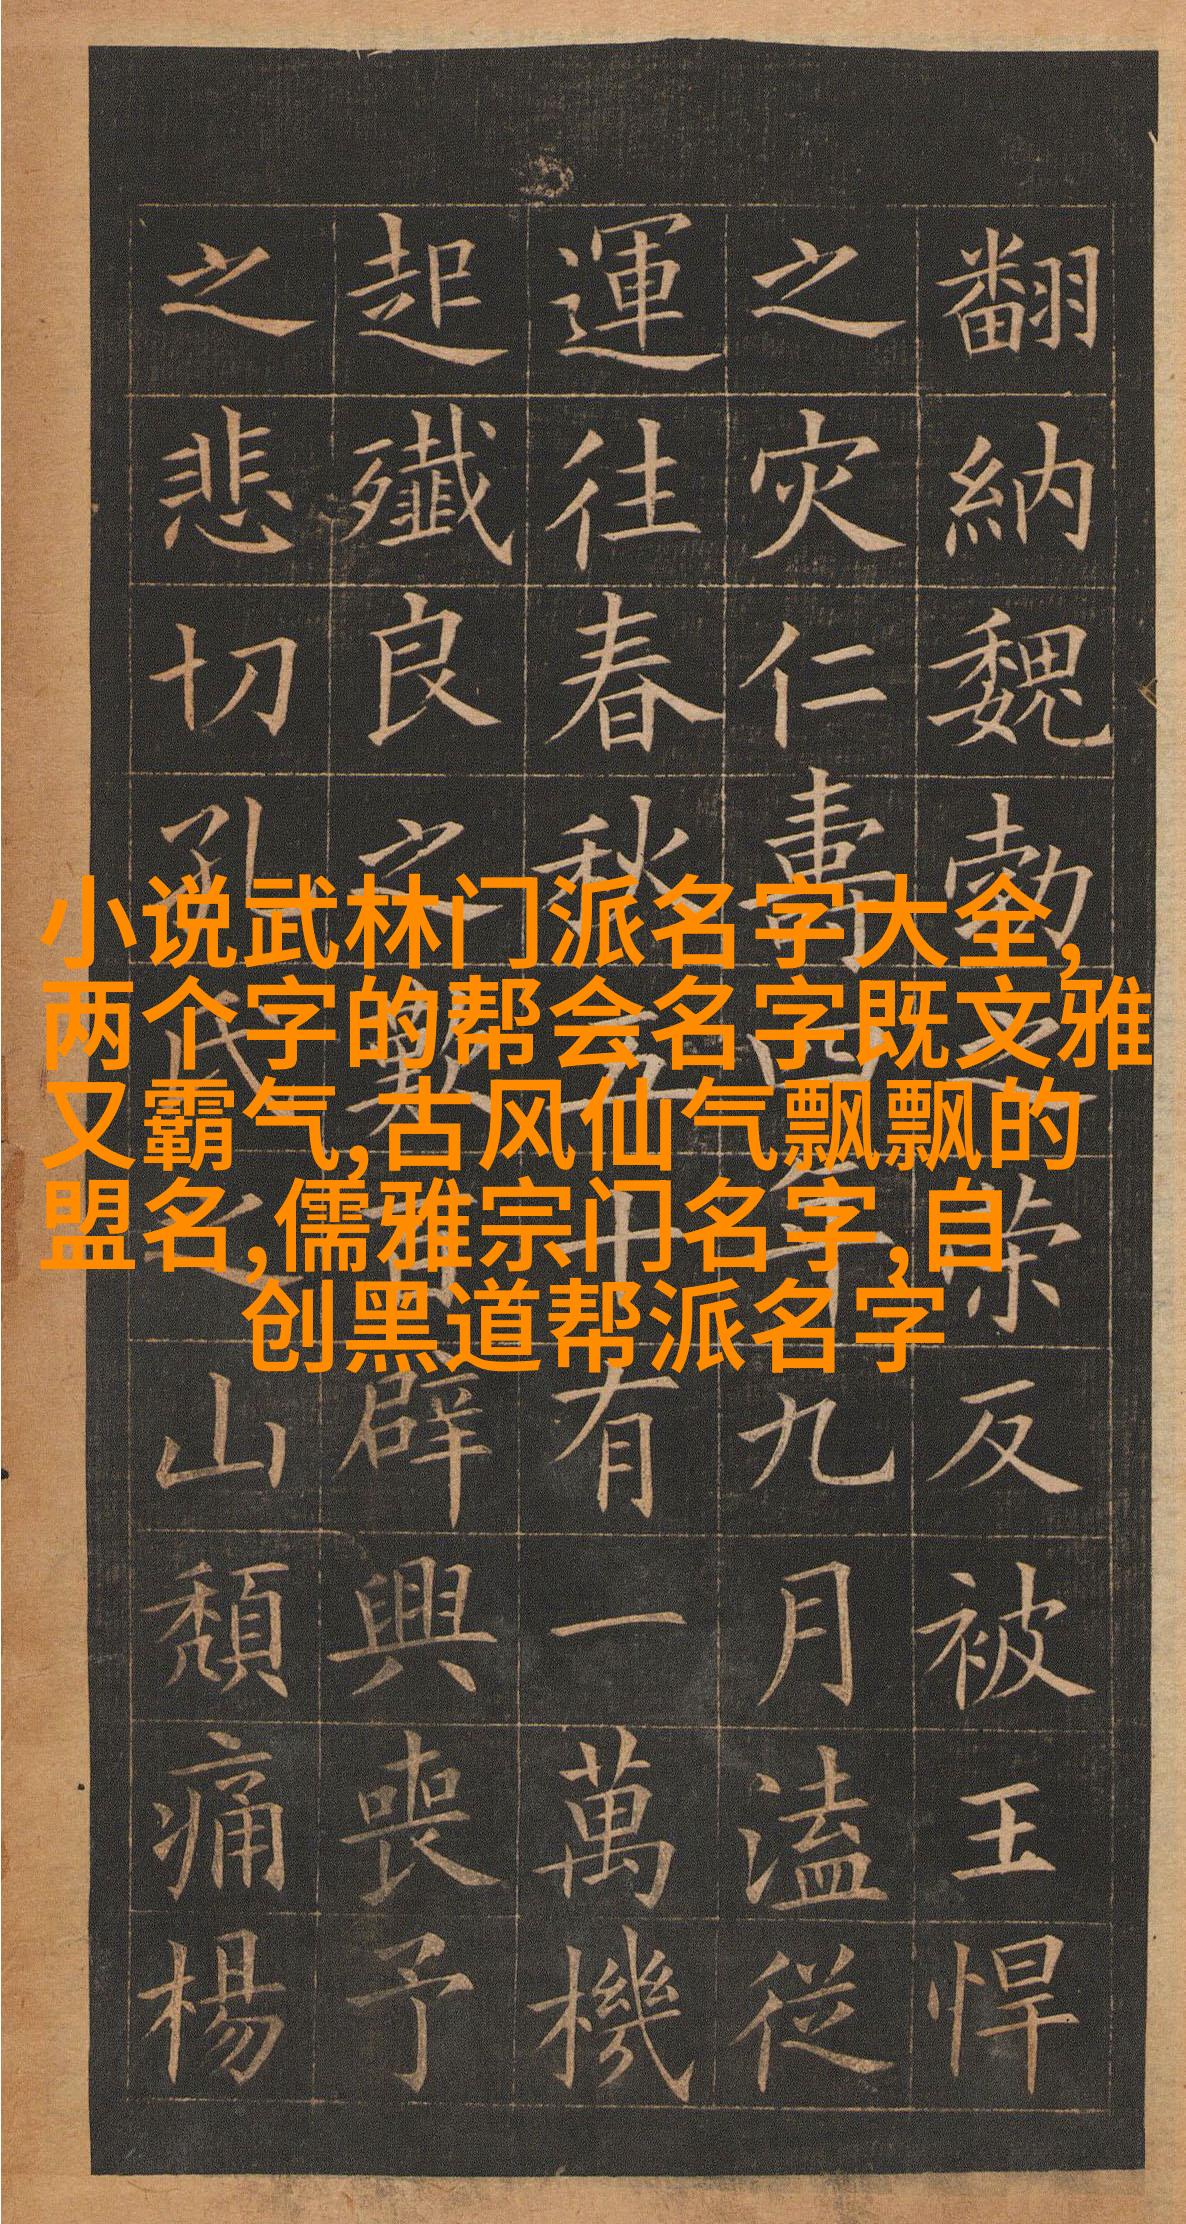 翻納魏勃之反被王悍
之灾仁壽四年九月溘從
運往春秋五十有一萬機
起殲良之歎百辟興喪予
之悲切孔氏之山頹痛楊
小说武林门派名字大全,
两个字的帮会名字既文雅
又霸气,古风仙气飘飘的
盟名,儒雅宗门名字,自
创黑道帮派名字